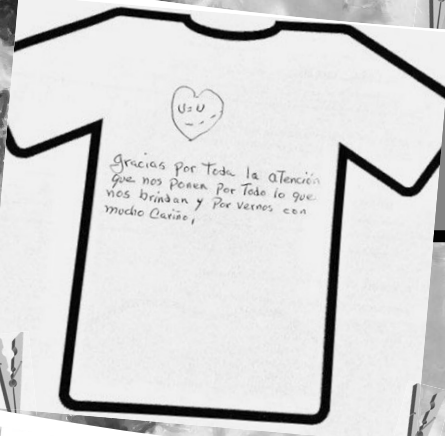 U=U
gracias por Toda la aTención
que nos ponen por Todo lo que
nos brindan y por vernos con
mucho Cariño,